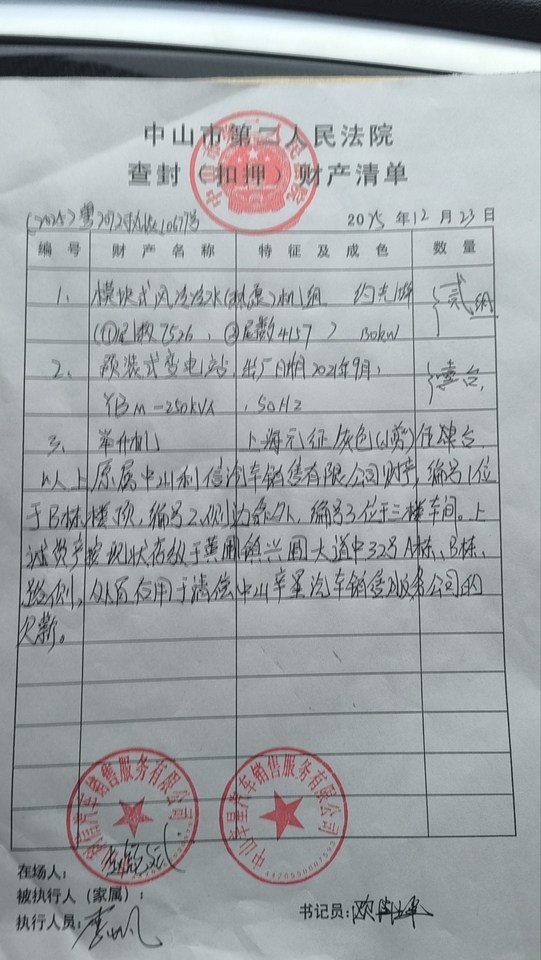 中山市第二人民法院
查封（扣押）财产清单
(2025)粤2072执恢10677号 2025年12月23日
编号 财产名称 特征及成色 数量
1、模块式风冷冷水(热泵)机组 约克牌 贰组
(①尾数7526、②尾数4157) 130kW
2、预装式变电站 出厂日期2021年9月, 壹台
YBM-250kVA ,50Hz
3、举升机 上海 灰色 台
以上原属中山利信汽车销售有限公司财产,编号1位
于B栋楼顶,编号2侧边 ,编号3位于三楼车间。上
述资产按现状存放于黄圃镇兴圃大道中32号A栋、B栋、
侧,处置仅用于清偿中山车星汽车销售服务公司的
欠薪。
利信汽车销售服务有限公司
中山车星汽车销售服务有限公司
在场人：
被执行人（家属）：
执行人员： 书记员：